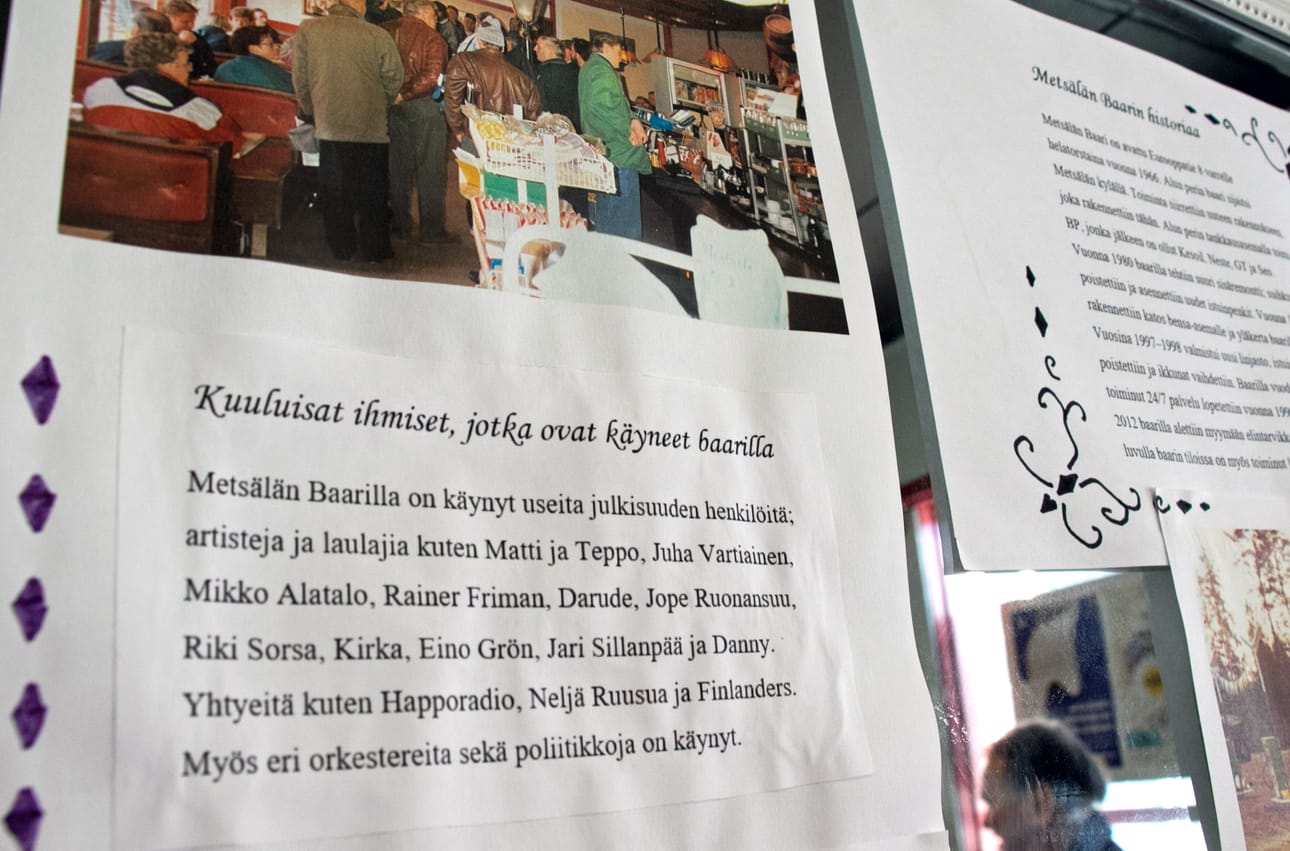 Kuuluisat ihmiset, jotka ovat käyneet baarilla
Metsälän Baarilla on käynyt useita julkisuuden henkilöitä;
artisteja ja laulajia kuten Matti ja Teppo, Juha Vartiainen,
Mikko Alatalo, Rainer Friman, Darude, Jope Ruonansuu,
Riki Sorsa, Kirka, Eino Grön, Jari Sillanpää ja Danny.
Yhtyeitä kuten Happoradio, Neljä Ruusua ja Finlanders.
Myös eri orkestereita sekä poliitikkoja on käynyt.
Metsälän Baarin historiaa
Metsälän Baari on avattu Eurooppatie 8 varrelle
helatorstaina vuonna 1966. Alun perin baari sijaitsi
Metsälän kylällä. Toiminta siirrettiin uuteen rakennukseen,
joka rakennettiin tähän. Alun perin tankkausasemalla
BP, jonka jälkeen on ollut Kesoil, Neste, GT ja Seo.
Vuonna 1980 baarilla tehtiin suuri sisäremontti;
poistettiin ja asennettiin uudet istuinpenkit. Vuonna
rakennettiin katos bensa-asemalle ja yläkerta
Vuosina 1997–1998 valmistui uusi linjasto,
poistettiin ja ikkunat vaihdettiin. Baarilla
toiminut 24/7 palvelu lopetettiin vuonna
2012 baarilla alettiin myymään
luvulla baarin tiloissa on myös toiminut